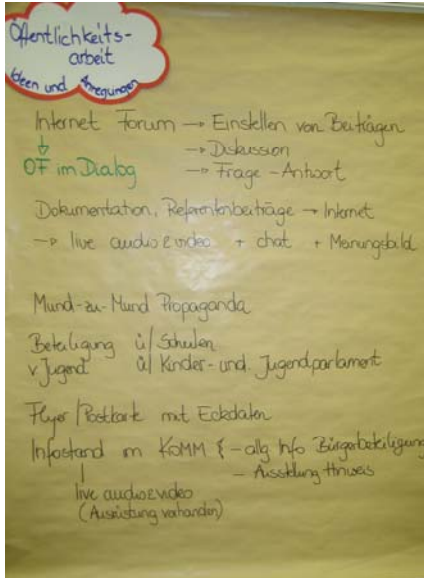 Öffentlichkeits-
arbeit
Ideen und Anregungen
Internet Forum → Einstellen von Beiträgen
→ Diskussion
OF im Dialog → Frage - Antwort
Dokumentation, Referentenbeiträge → Internet
→ live audio & video + chat + Meinungsbild
Mund-zu-Mund Propaganda
Beteiligung ü/ Schulen
v. Jugend ü/ Kinder- und Jugendparlament
Flyer/Postkarte mit Eckdaten
Infostand im KOMM - allg Info Bürgerbeteiligung
- Ausstellung Hinweis
live audio & video
(Ausrüstung vorhanden)